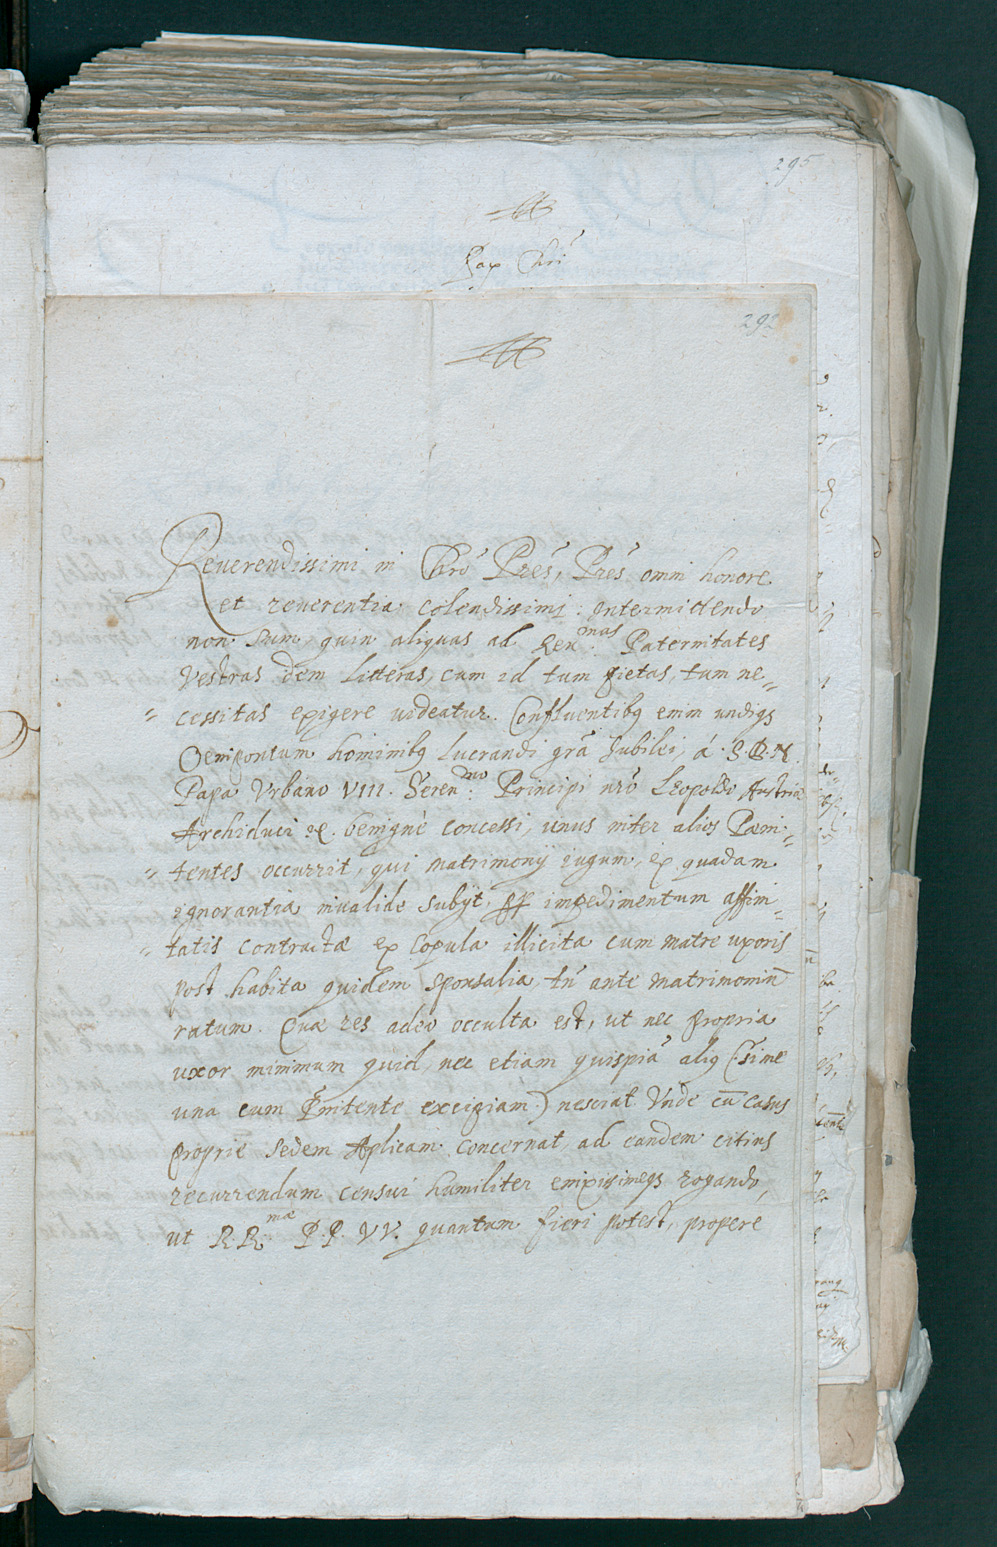 295
Pax Chri̅
292
Reuerendissimi in Chro̅ Pr̅es, Pr̅es omni honore
et reuerentia colendissimi. Intermittendo
non sum quin aliquas ad Reu.mas Paternitates
Vestras dem litteras, cum id tum pietas, tum ne=
= cessitas exigere uideatur. Confluentibq enim undiqꝫ
Oenipontum hominibq lucrandi gr̅a Jubilei, á S. D. N.
Papa Vrbano VIII. Seren.mo Principi nr̅o Leopoldo Austriæ
Archiduci &. benignè concessi, unus inter alios Pæni=
= tentes occurrit, qui matrimonij iugum, ex quadam
ignorantia inualide subijt, ꝓp impedimentum affini=
= tatis contractæ ex copula illicita cum matre uxoris
post habita quidem sponsalia, tn̅ ante matrimoniu̅
ratum. Quæ res adeo occulta est, ut nec propria
uxor minimum quid, nec etiam quispia̅ aliq (si me
una cum Pœnitente excipiam) nesciat. Vnde cu̅ casus
proprie sedem Aplicam concernat, ad eandem citius
recurrendum censui humiliter enixissimeqꝫ rogando,
ut RR.mæ P.P. VV. quantum fieri potest, propere